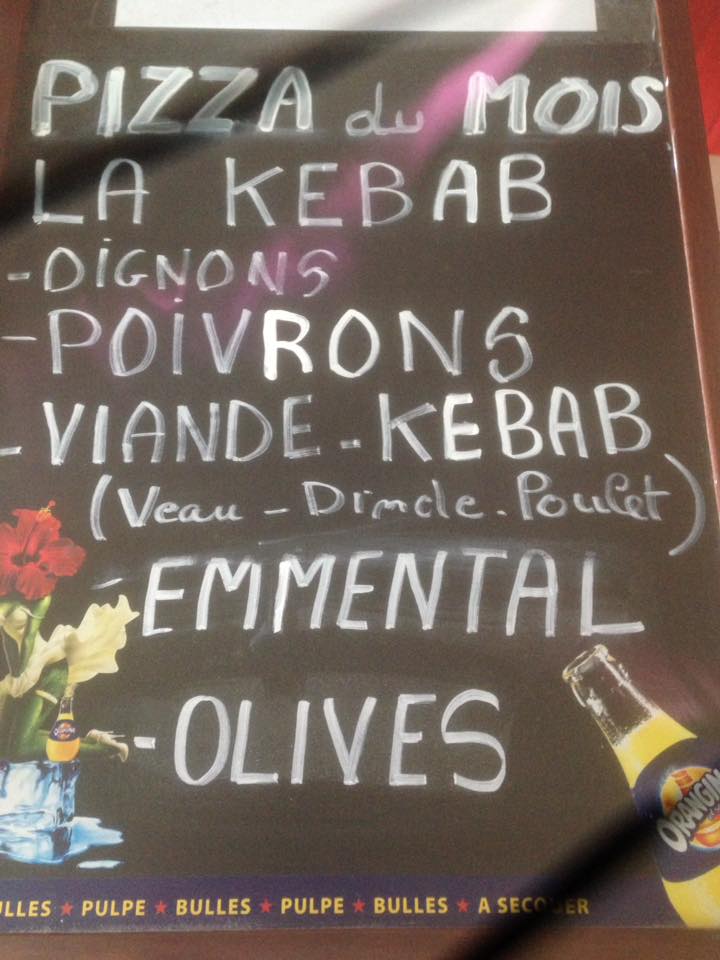 PIZZA du MOIS
LA KEBAB
-OIGNONS
-POIVRONS
-VIANDE-KEBAB
(Veau - Dinde-Poulet)
-EMMENTAL
-OLIVES
ORANGIN
ULLES ★ PULPE ★ BULLES ★ PULPE ★ BULLES ★ A SECOUER